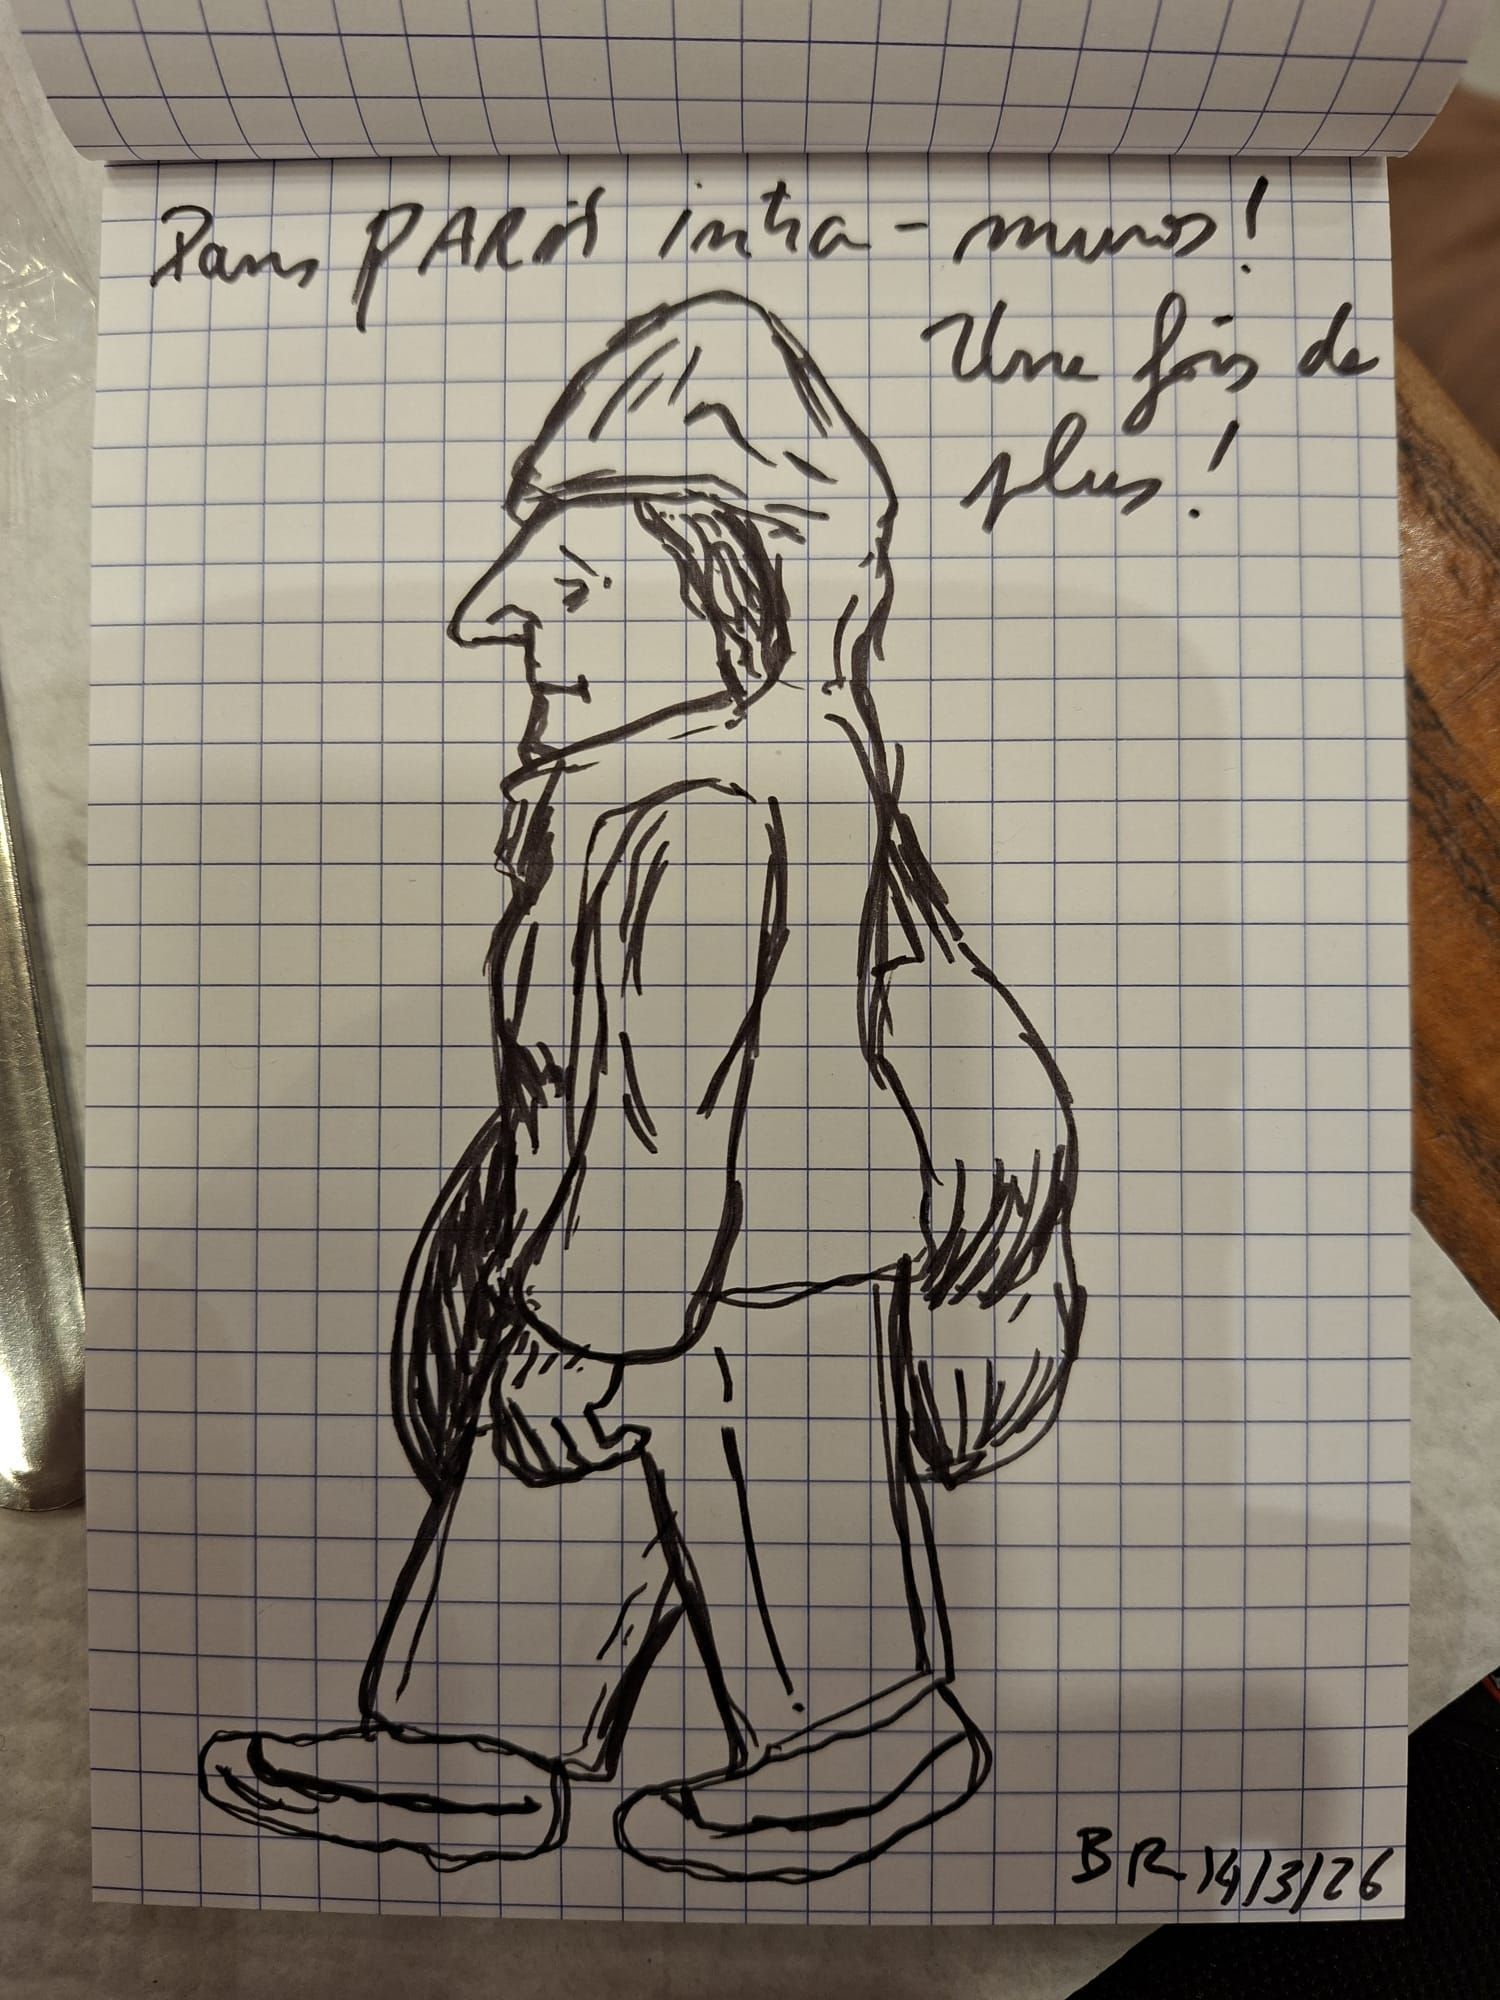 Dans PARIS intra-muros!
Une fois de
plus!
BR 14/3/26